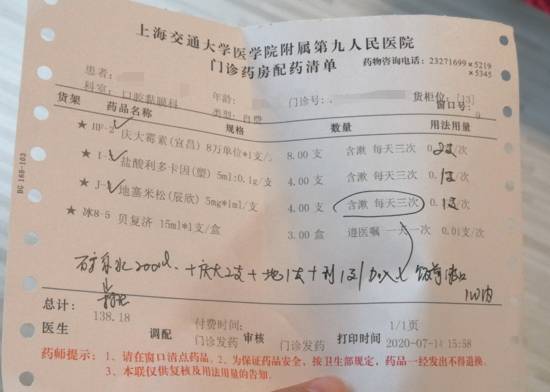 上海交通大学医学院附属第九人民医院
门诊药房配药清单 药物咨询电话:23271699×5219
×5345
患者:
科室:口腔黏膜科 年龄: 门诊号: 货柜位:[13]
类型:自费 窗口号:
货架 药品名称 规格 数量 用法用量
庆大霉素(宜昌) 8万单位*1支/ 8.00 支 含漱 每天三次 2支/次
★ 盐酸利多卡因(塑) 5ml:0.1g/支 4.00 支 含漱 每天三次 1支/次
★ 地塞米松(辰欣) 5mg*1ml/支 4.00 支 含漱 每天三次 1支/次
★ 冰8-5 贝复济 15ml*1支/盒 3.00 盒 遵医嘱 一天一次 0.01支/次
矿泉水200ml + 庆大2支 + 地1支 + 利1支
总计: 138.18
付费时间: 1/1页
医生 调配 门诊发药 审核 门诊发药 打印时间 2020-07-1 15:58
药师提示: 1、请在窗口清点药品。2、为保证药品安全,按卫生部规定,药品一经发出不得退换。
3、本联仅供复核及用法用量的告知。
BG 168-103